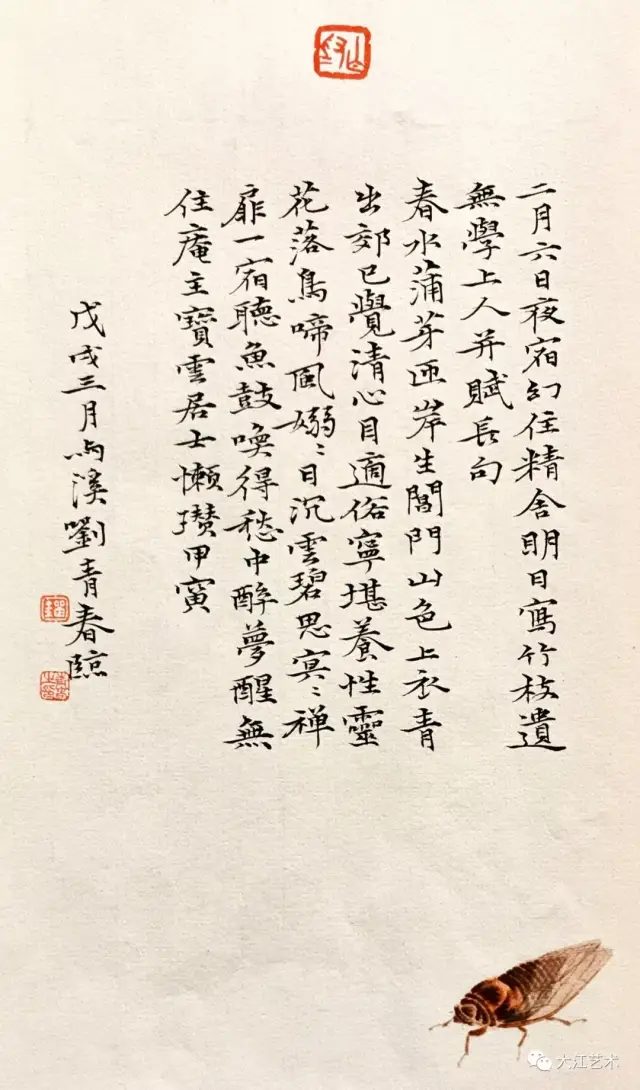 二月六日夜宿幻住精舍明日寫竹枝遺
無學上人并賦長句
春水蒲芽匝岸生閶門山色上衣青
出郊已覺清心目適俗寧堪養性靈
花落鳥啼風嫋〻日沉雲碧思冥〻禪
扉一宿聽魚鼓喚得愁中醉夢醒無
住庵主寶雲居士懶瓚甲寅
戊戌三月溪劉青春臨
大江艺术